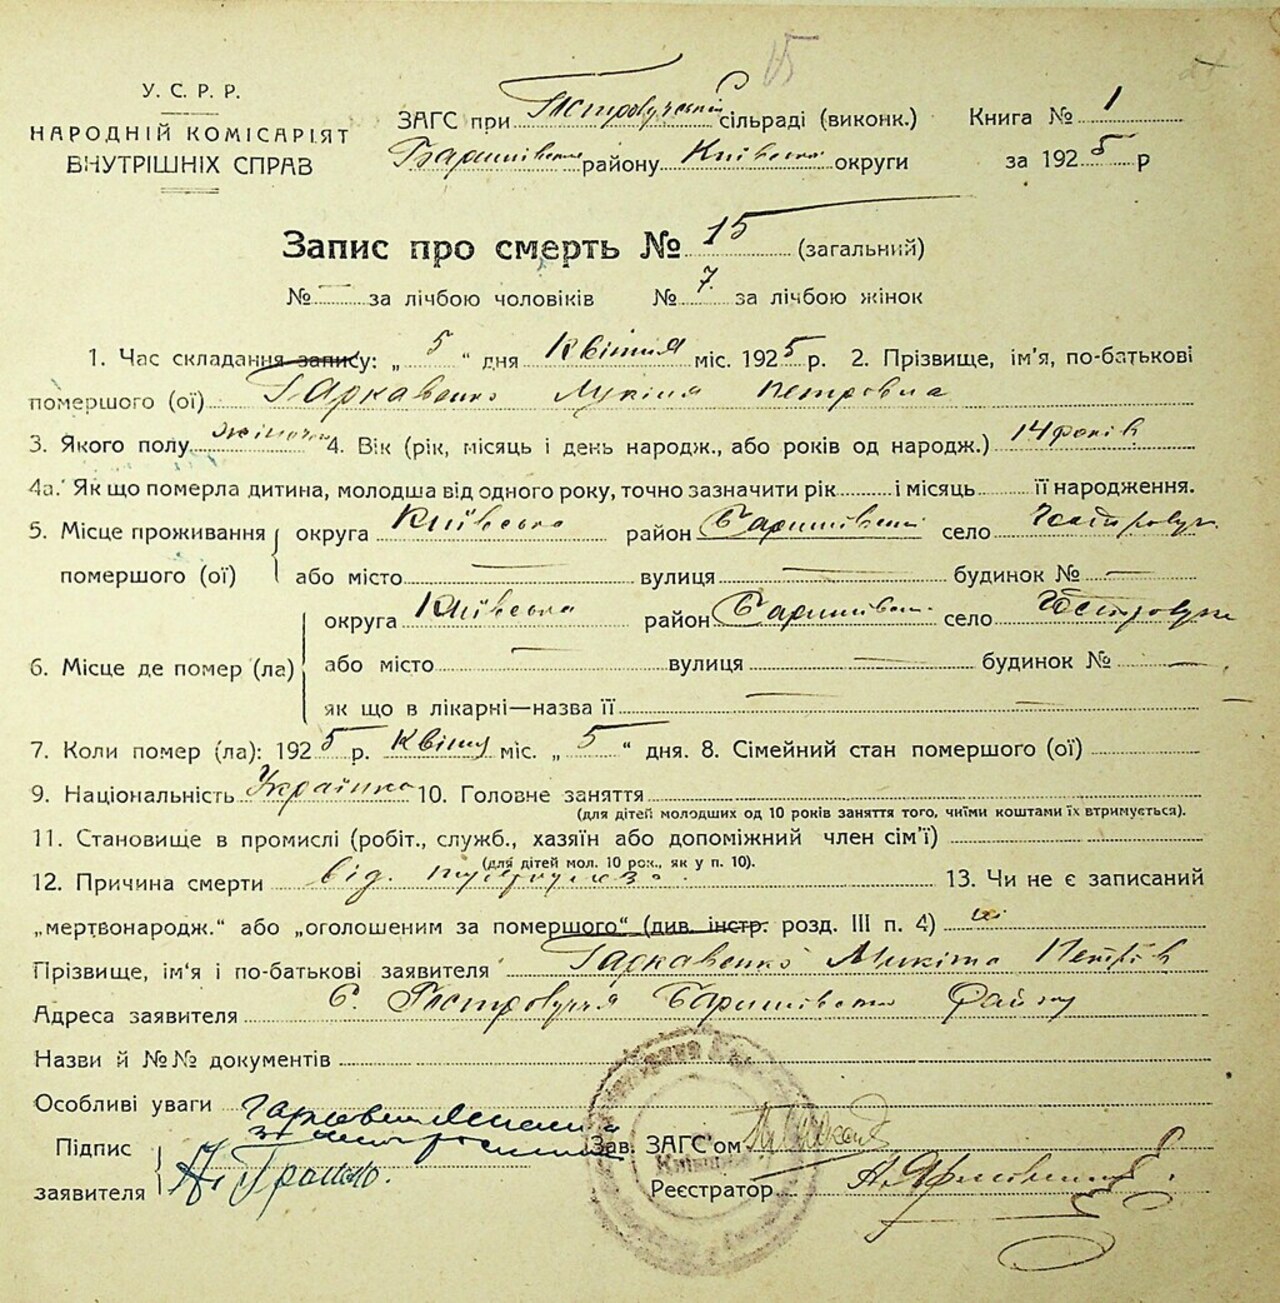 У. С. Р. Р.
НАРОДНІЙ КОМІСАРІЯТ
ВНУТРІШНІХ СПРАВ
ЗАГС при сільраді (виконк.)
Баришівськ району Київськ округи
Книга № 1
за 1925 р
Запис про смерть № 15 (загальний)
№ — за лічбою чоловіків № 7 за лічбою жінок
1. Час складання запису: „ 5 “ дня Квітня міс. 1925 р. 2. Прізвище, ім'я, по-батькові
помершого (ої) Гаркавенко Петровна
3. Якого полу жіноч 4. Вік (рік, місяць і день народж., або років од народж.) 14 років
4а. Як що померла дитина, молодша від одного року, точно зазначити рік і місяць її народження.
5. Місце проживання помершого (ої) округа Київська район Баришівськ село
або місто — вулиця — будинок № —
6. Місце де помер (ла) округа Київська район Баришівськ село
або місто — вулиця — будинок № —
як що в лікарні—назва її —
7. Коли помер (ла): 1925 р. Квітня міс. „ 5 “ дня. 8. Сімейний стан помершого (ої)
9. Національність Українка 10. Головне заняття
(для дітей молодших од 10 років заняття того, чиїми коштами їх втримується).
11. Становище в промислі (робіт., служб., хазяїн або допоміжний член сім'ї)
(для дітей мол. 10 рок., як у п. 10).
12. Причина смерти від 13. Чи не є записаний
„мертвонародж.“ або „оголошеним за помершого“ (див. інстр. розд. III п. 4) ні
Прізвище, ім'я і по-батькові заявителя Гаркавенко Микита Петрів
Адреса заявителя С. Баришівськ Району
Назви й №№ документів
Особливі уваги
Підпис
заявителя
Зав. ЗАГС'ом
Реєстратор